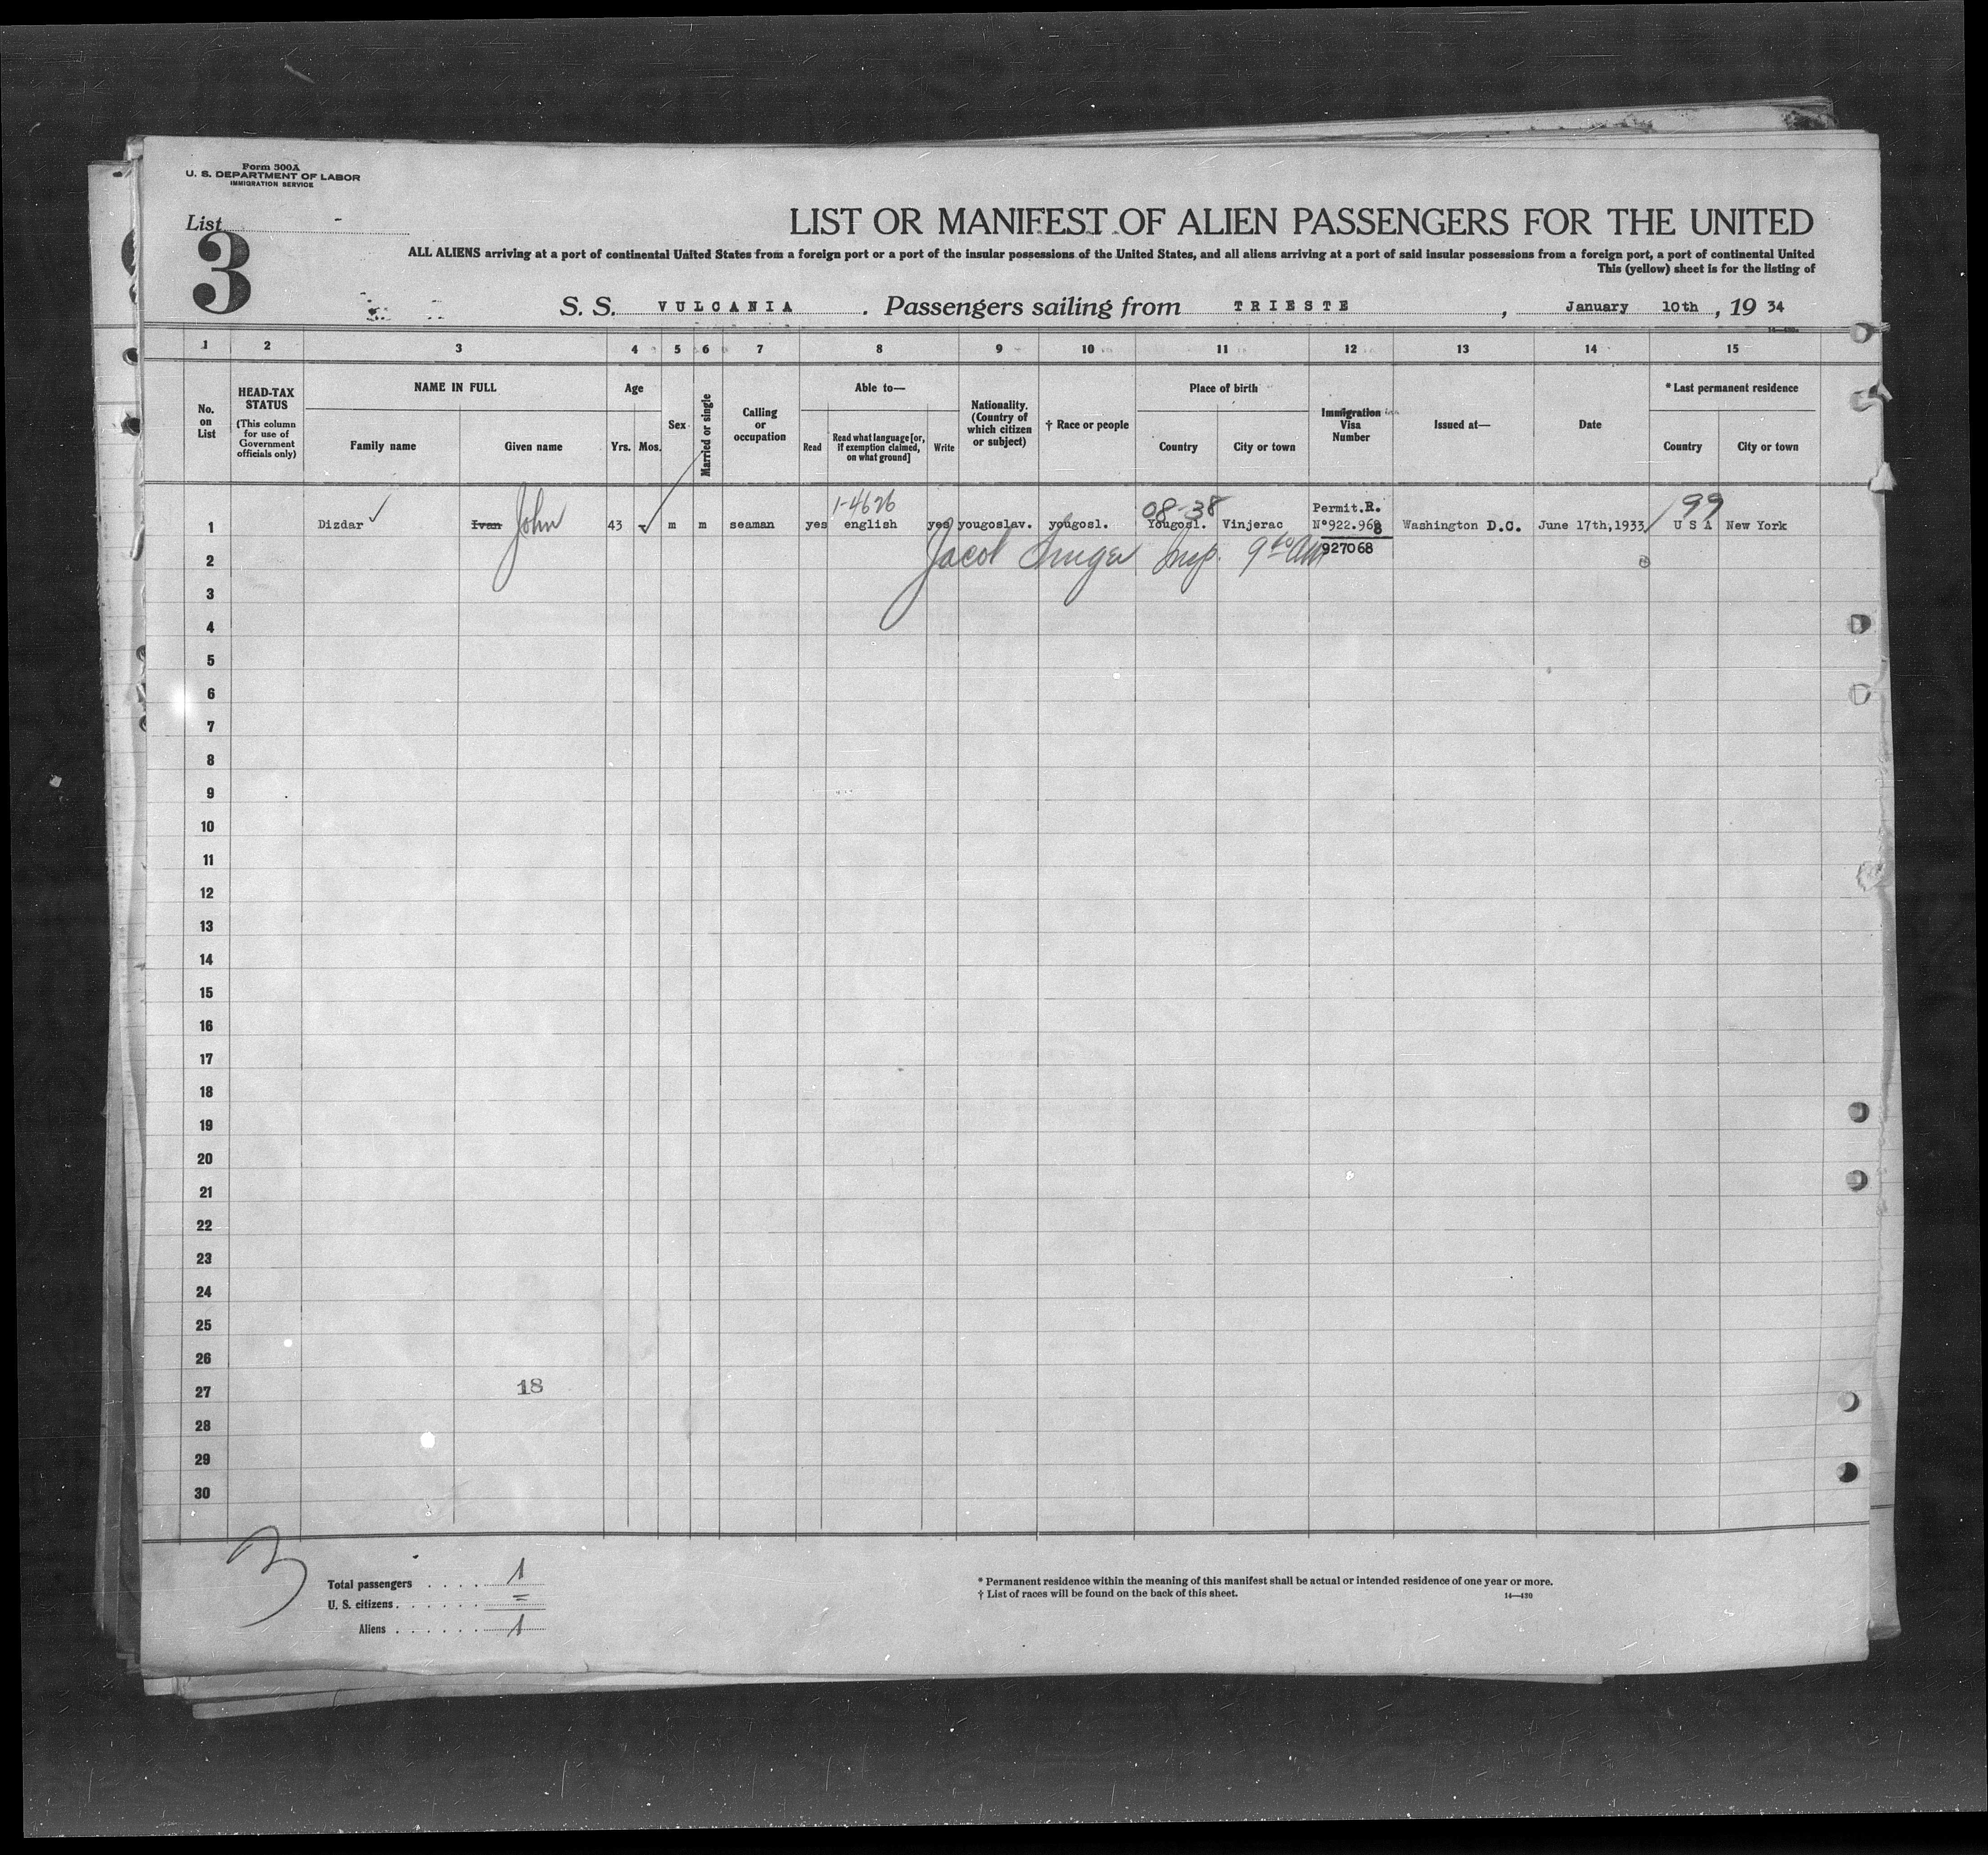 Form 500A
U. S. DEPARTMENT OF LABOR
IMMIGRATION SERVICE
List
3
LIST OR MANIFEST OF ALIEN PASSENGERS FOR THE UNITED
ALL ALIENS arriving at a port of continental United States from a foreign port or a port of the insular possessions of the United States, and all aliens arriving at a port of said insular possessions from a foreign port, a port of continental United
This (yellow) sheet is for the listing of
S. S. VULCANIA. Passengers sailing from TRIESTE, January 10th, 19 34
1 2 3 4 5 6 7 8 9 10 11 12 13 14 15
No. on List
HEAD-TAX STATUS
(This column for use of Government officials only)
NAME IN FULL
Family name Given name
Age
Yrs. Mos.
Sex
Married or single
Calling or occupation
Able to—
Read Read what language [or, if exemption claimed, on what ground] Write
Nationality. (Country of which citizen or subject)
† Race or people
Place of birth
Country City or town
Immigration Visa Number
Issued at—
Date
* Last permanent residence
Country City or town
1-4626 08-38 Permit.R. 99
1 Dizdar Ivan John 43 m m seaman yes english yes yougoslav. yougosl. Yougosl. Vinjerac Nº922.968 Washington D.C. June 17th,1933 U S A New York
2 Insp. 927068
3
4
5
6
7
8
9
10
11
12
13
14
15
16
17
18
19
20
21
22
23
24
25
26
27 18
28
29
30
3
Total passengers . . . . 1
U. S. citizens . . . . . . =
Aliens . . . . . . 1
* Permanent residence within the meaning of this manifest shall be actual or intended residence of one year or more.
† List of races will be found on the back of this sheet.
14—430